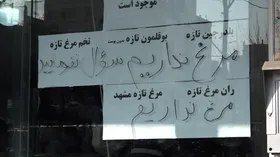 موجود است
بلدرچین تازه بوقلمون تازه تخم مرغ تازه
مرغ نداریم سؤال نفرمایید
ران مرغ تازه مرغ تازه مشهد
مرغ نداریم